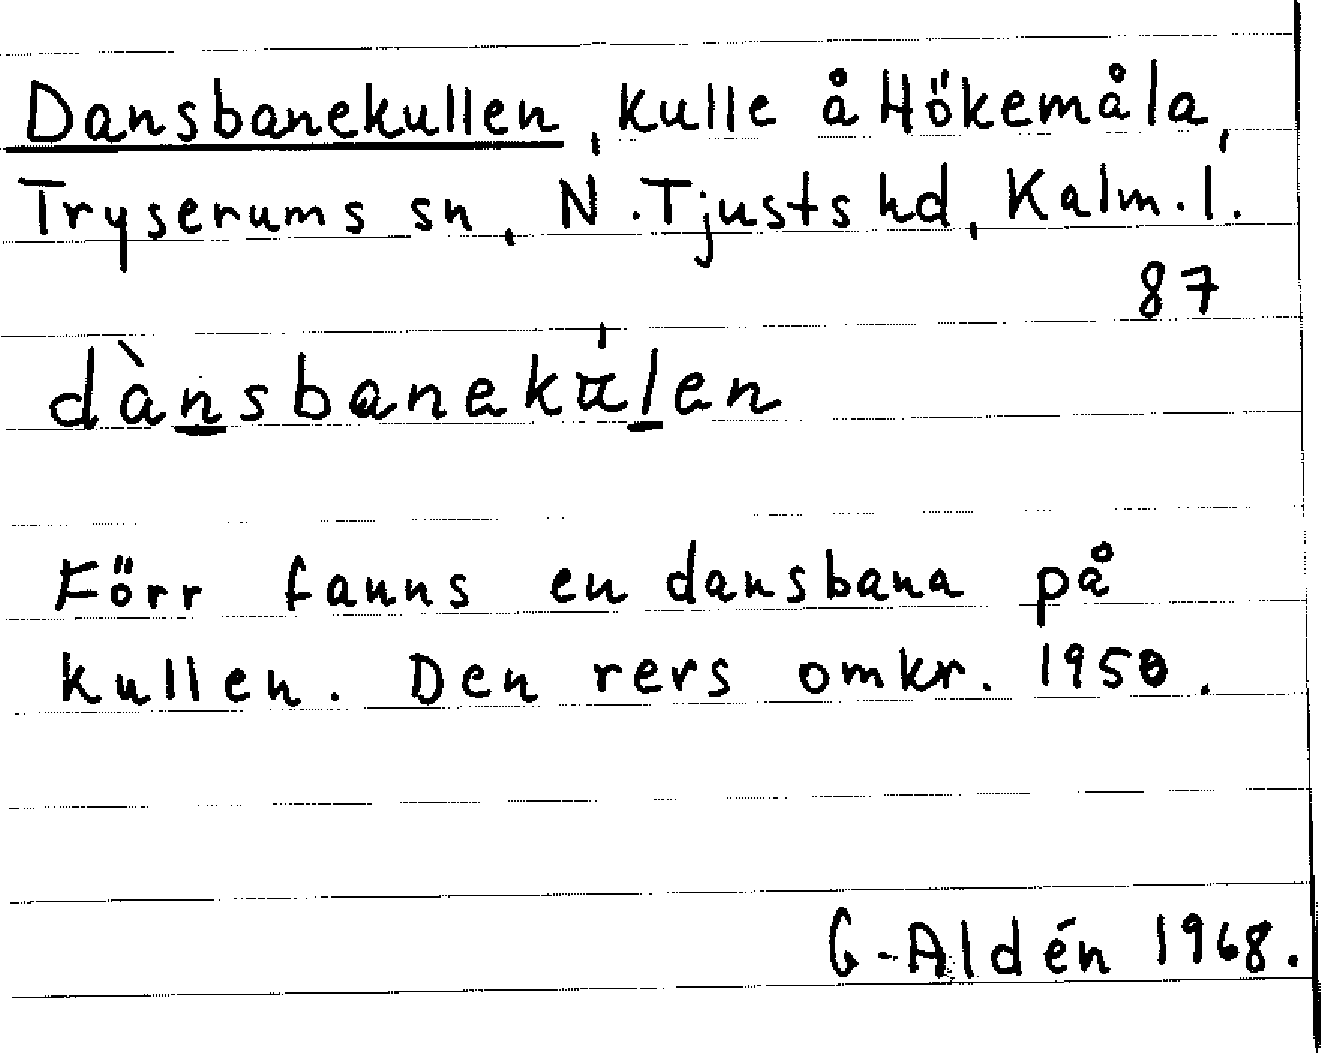 Dansbanekullen, kulle å Hökemåla,
Tryserums sn, N. Tjusts hd, Kalm. l.
87
dànsbaneku̍len
Förr fanns en dansbana på
kullen. Den revs omkr. 1950.
G. Aldén 1968.